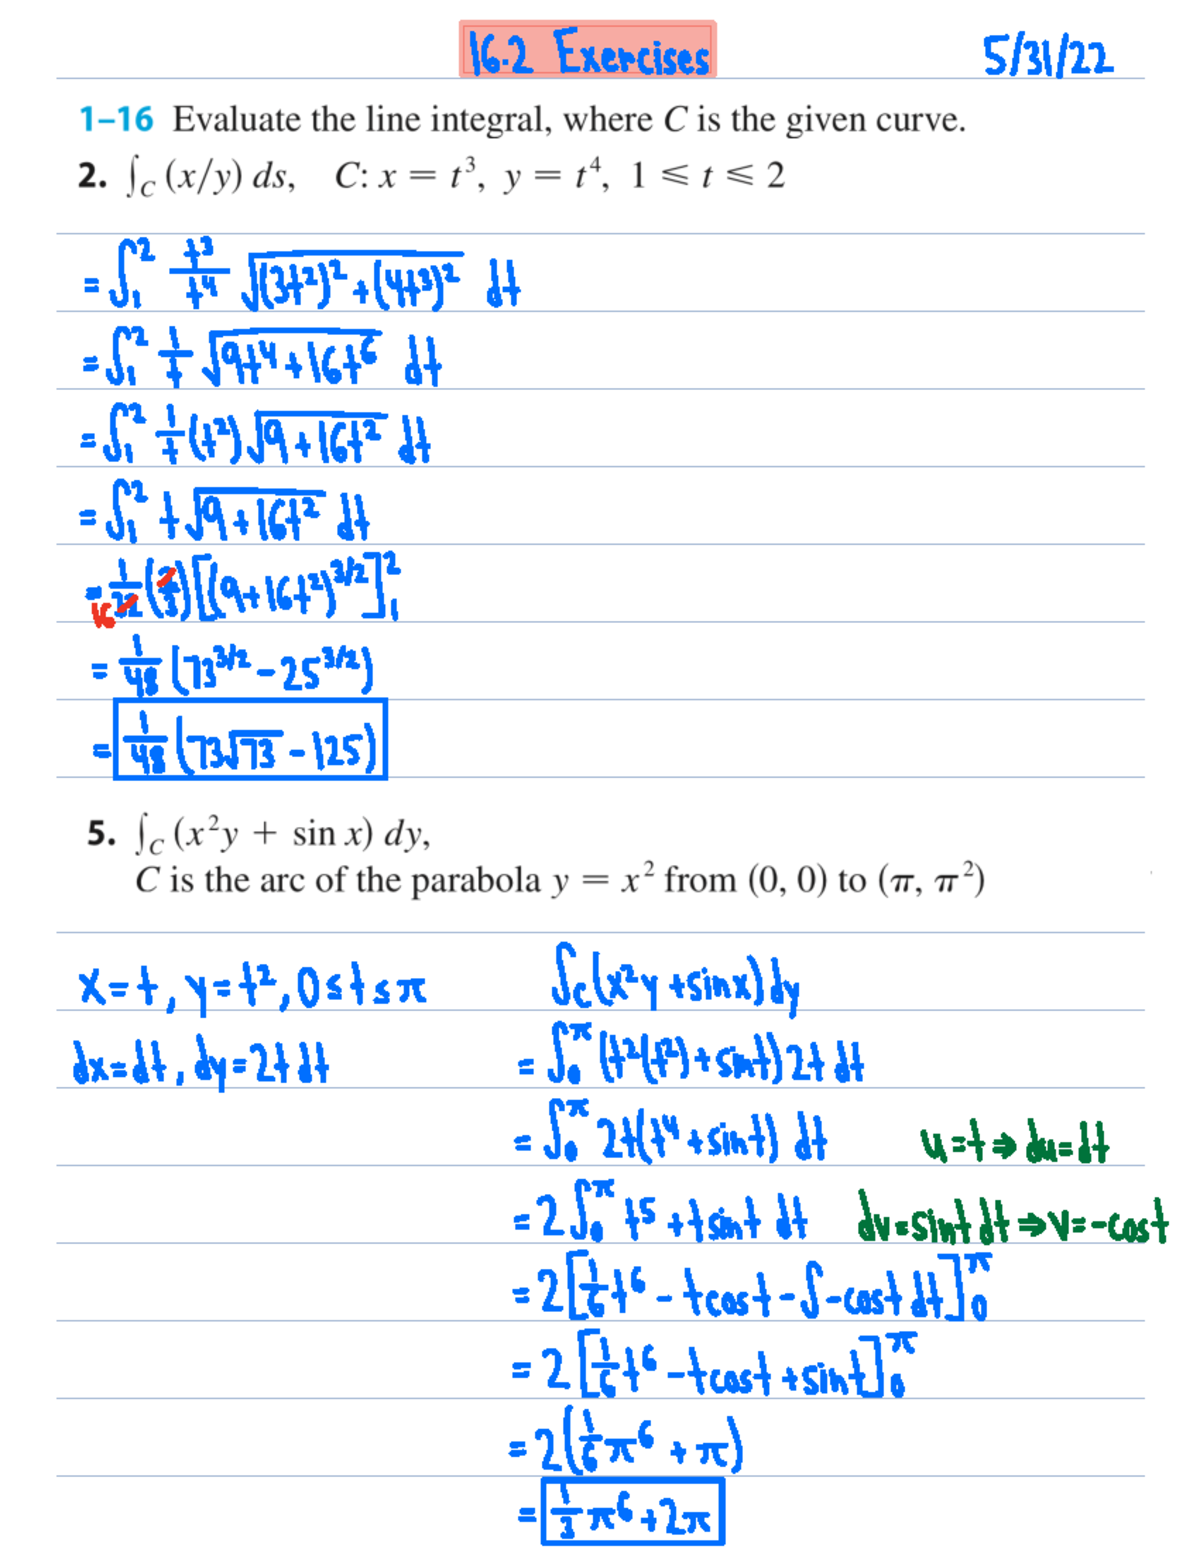 16.2 Exercises 5/31/22
1–16 Evaluate the line integral, where C is the given curve.
2. ∫_C (x/y) ds, C: x = t³, y = t⁴, 1 ⩽ t ⩽ 2
= ∫₁² t³/t⁴ √((3t²)² + (4t³)²) dt
= ∫₁² 1/t √(9t⁴ + 16t⁶) dt
= ∫₁² 1/t (t²) √(9 + 16t²) dt
= ∫₁² t √(9 + 16t²) dt
= 1/32 (2/3) [(9 + 16t²)^(3/2)]₁²
16
= 1/48 (73^(3/2) − 25^(3/2))
= 1/48 (73√73 − 125)
5. ∫_C (x²y + sin x) dy,
C is the arc of the parabola y = x² from (0, 0) to (π, π²)
x = t, y = t², 0 ≤ t ≤ π
dx = dt, dy = 2t dt
∫_C (x²y + sinx) dy
= ∫₀^π (t²(t²) + sint) 2t dt
= ∫₀^π 2t(t⁴ + sint) dt
u = t ⇒ du = dt
= 2 ∫₀^π t⁵ + t sint dt
dv = sint dt ⇒ v = −cost
= 2 [1/6 t⁶ − tcost − ∫ −cost dt]₀^π
= 2 [1/6 t⁶ − tcost + sint]₀^π
= 2 (1/6 π⁶ + π)
= 1/3 π⁶ + 2π